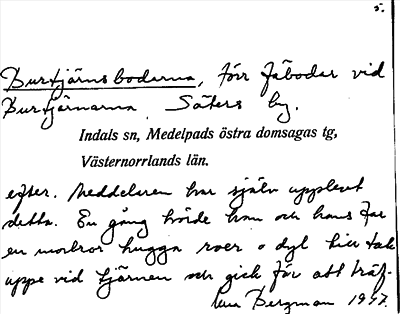 5.
Burtjärnsboderna, förr fäbodar vid
Burtjärnarna, Säters by.
Indals sn, Medelpads östra domsagas tg,
Västernorrlands län.
efter. Meddelaren har själv upplevat
detta. En gång hörde han och hans far
en morbror hugga roer o dyl till tak
uppe vid tjärnen och gick för att träf-
Bergman 1947.